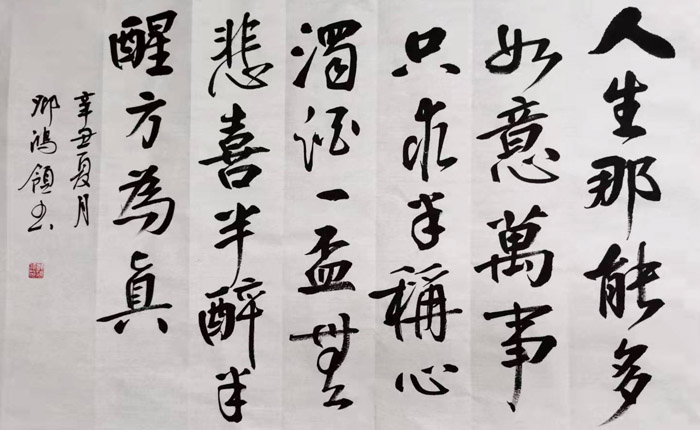 人生那能多
如意萬事
只求半稱心
濁酒一盃無
悲喜半醉半
醒方為真
辛丑夏月
鴻領书